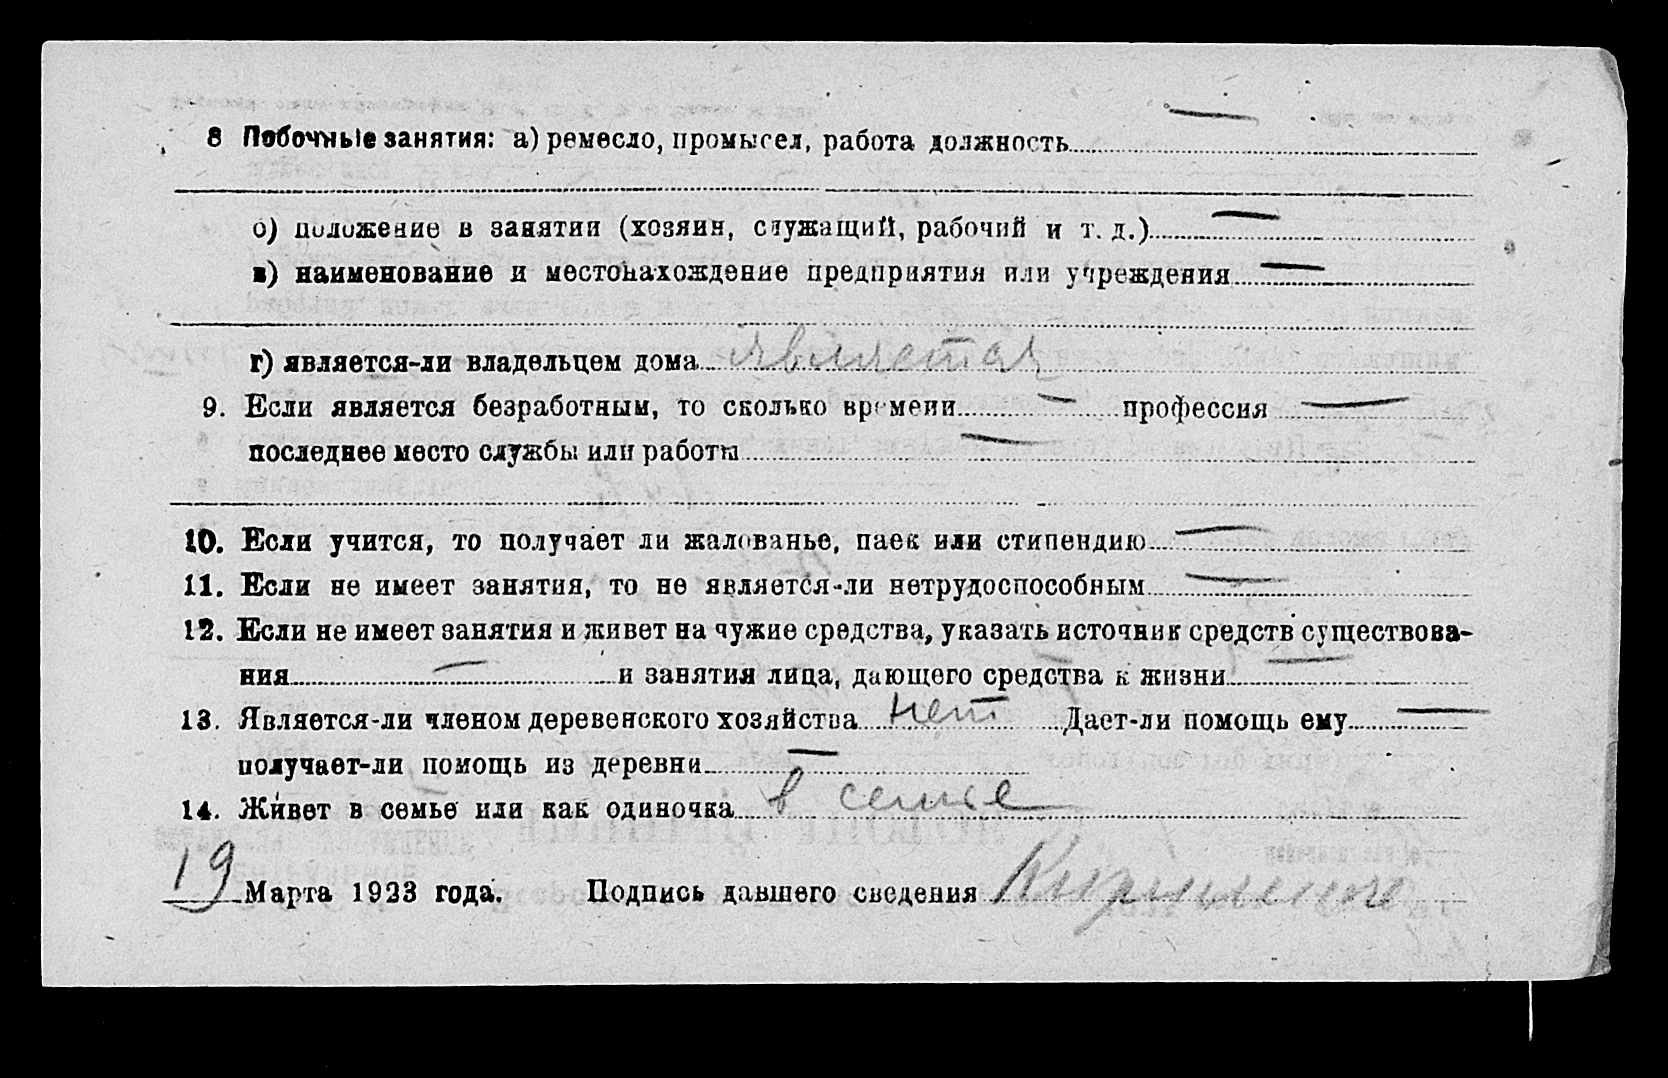 8 Побочные занятия: а) ремесло, промысел, работа должность —
б) положение в занятии (хозяин, служащий, рабочий и т. д.) —
в) наименование и местонахождение предприятия или учреждения —
г) является-ли владельцем дома является
9. Если является безработным, то сколько времени — профессия —
последнее место службы или работы —
10. Если учится, то получает ли жалованье, паек или стипендию —
11. Если не имеет занятия, то не является-ли нетрудоспособным —
12. Если не имеет занятия и живет на чужие средства, указать источник средств существова-
ния — и занятия лица, дающего средства к жизни —
13. Является-ли членом деревенского хозяйства нет Дает-ли помощь ему —
получает-ли помощь из деревни —
14. Живет в семье или как одиночка в семье
19 Марта 1923 года. Подпись давшего сведения